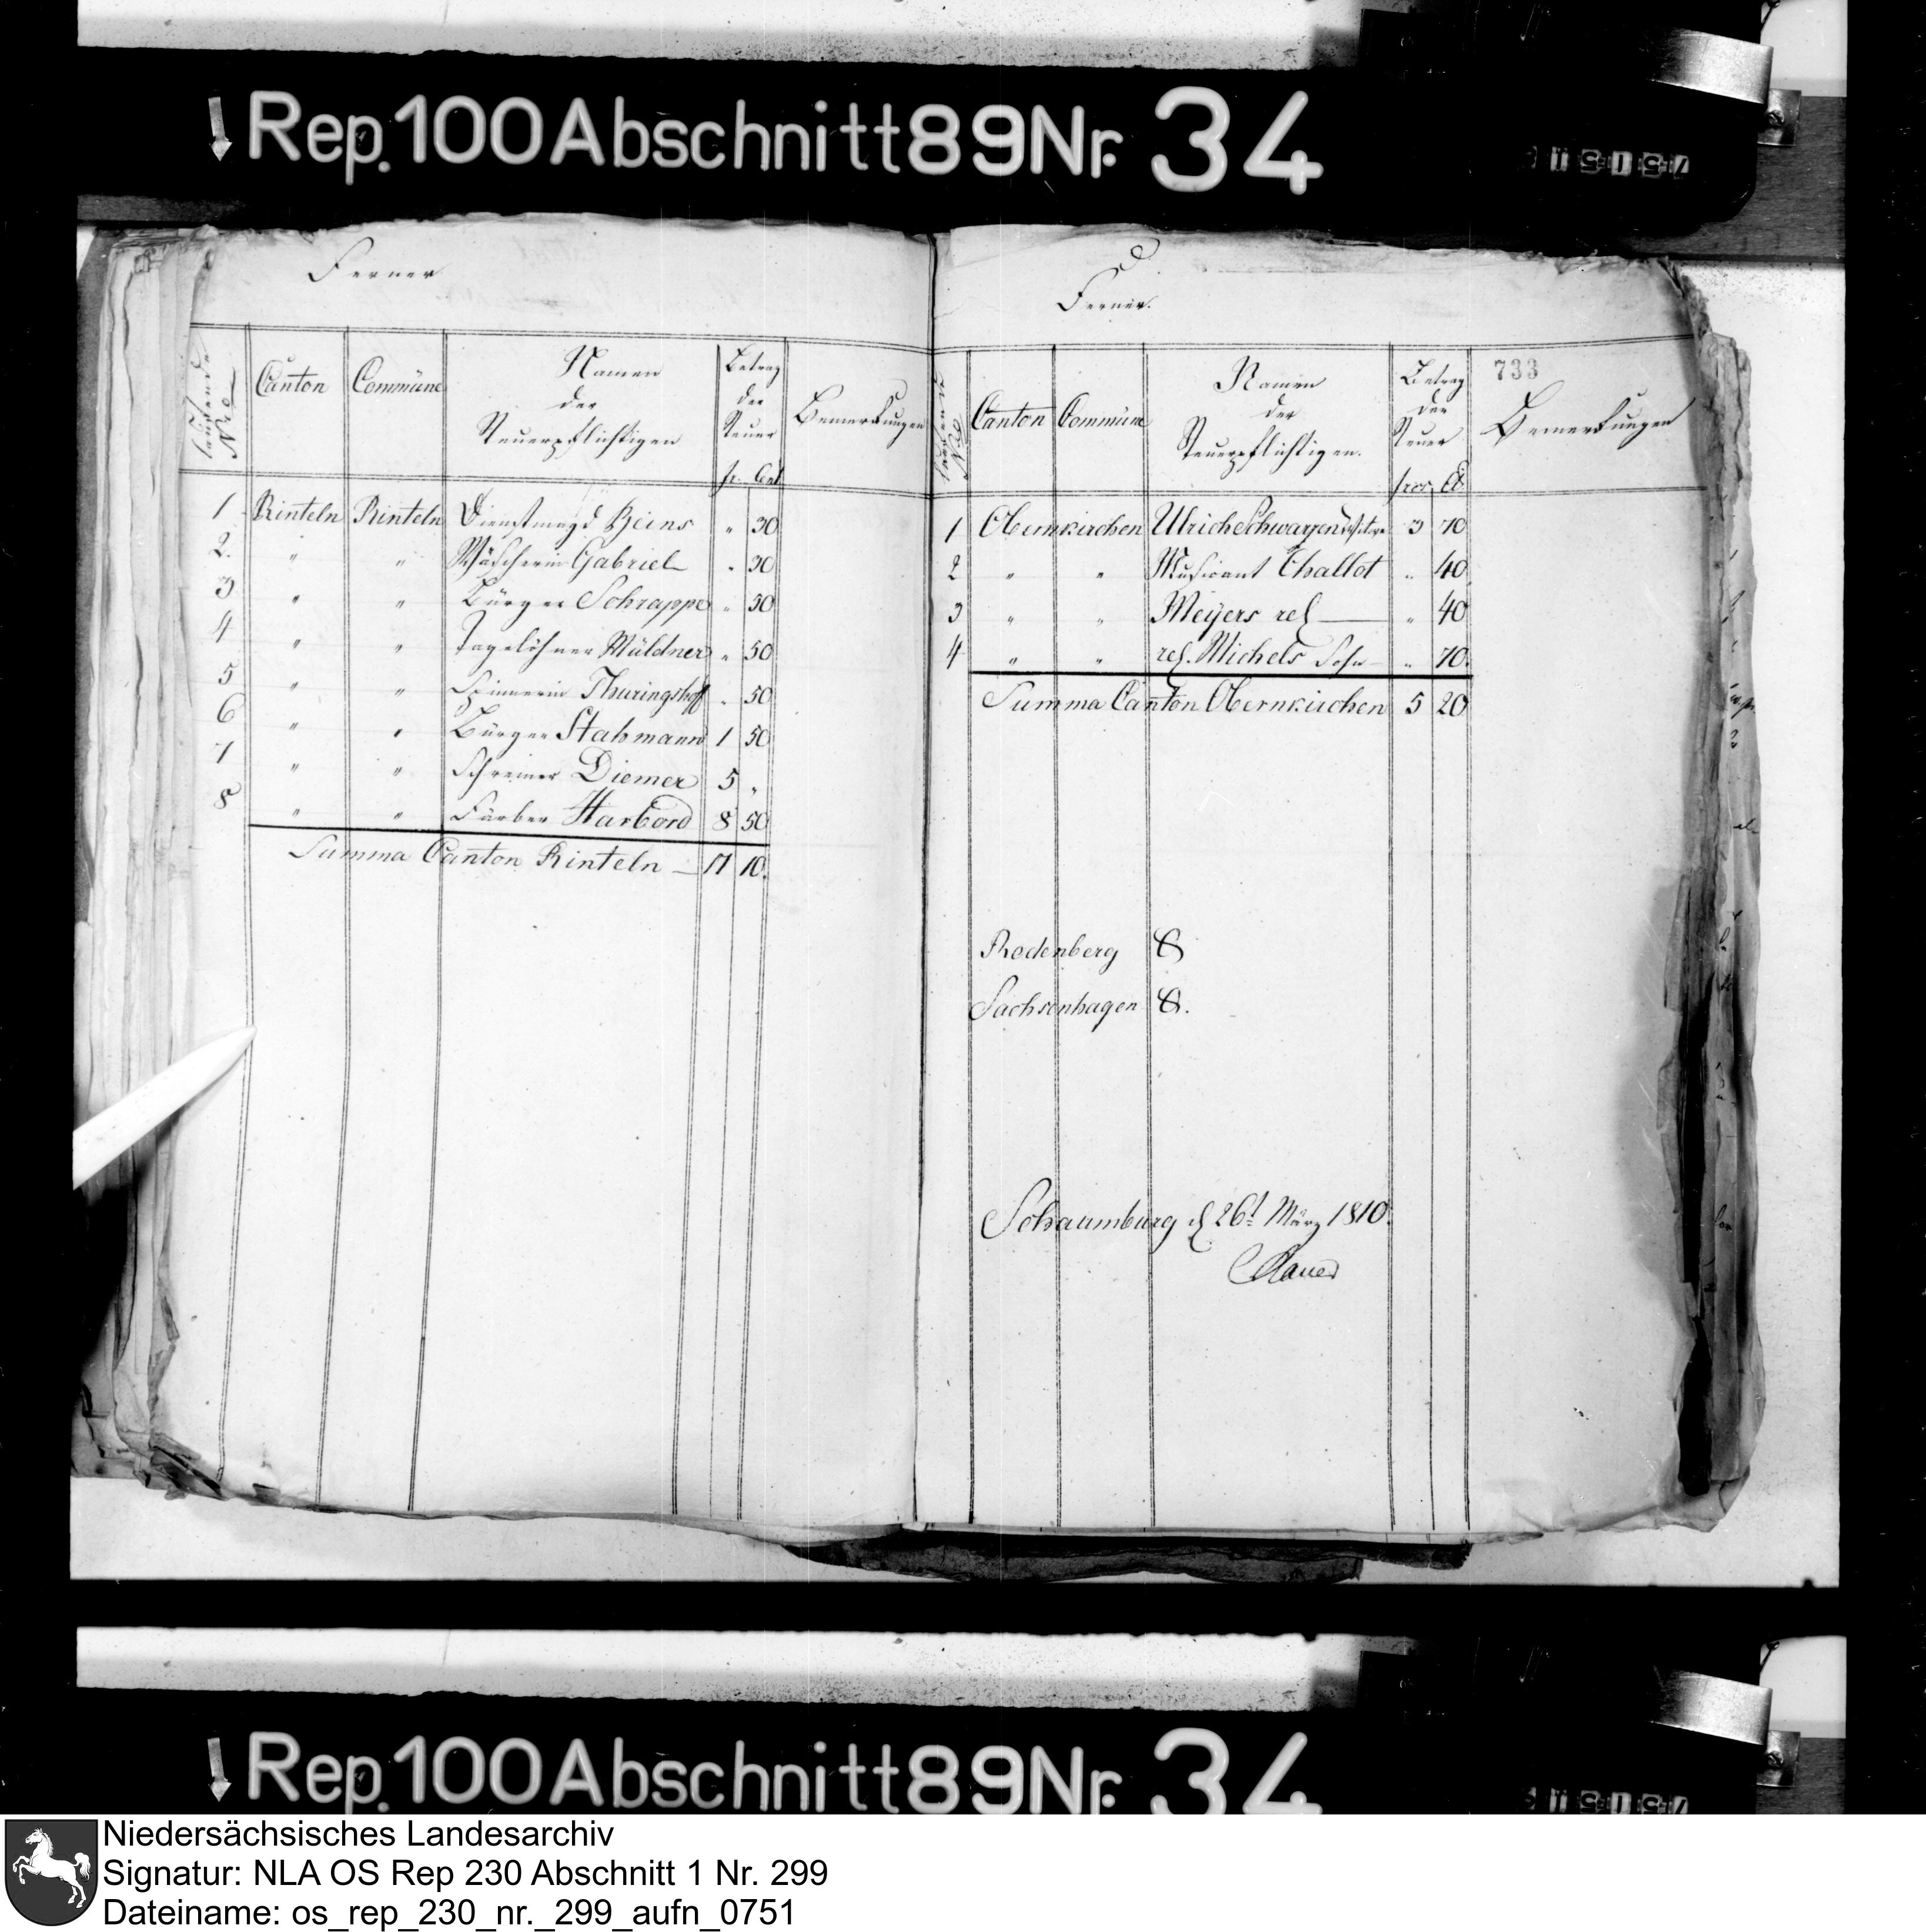 Rep. 100 Abschnitt 89 Nr. 34
Ferner
laufende Nro
Canton
Commüne
Namen
der
Steuerpflichtigen
Betrag
der
Steuer
fr. Cent
Bemerkungen
1 Rinteln Rinteln Dienstmagd Heins " 30
2. " " Wäscherin Gabriel " 30
3 " " Bürger Schrappe " 30
4 " " Tagelöhner Müldner " 50
5 " " Spinnerin Thuringshoff " 50
6 " " Bürger Stahmann 1 50
7 " " Schreiner Diemer 5 "
8 " " Färber Harbord 8 50
Summa Canton Rinteln — 17 10.
Ferner.
733
laufende Nro
Canton
Commüne
Namen
der
Steuerpflichtigen.
Betrag
der
Steuer
frcs. Ct
Bemerkungen
1 Obernkirchen Ulrich Schwarzen 3 70
2 " " Musicant Challot " 40
3 " " Meyers rel — " 40
4 " " rel. Michels Sohn — " 70.
Summa Canton Obernkirchen 5 20
Rodenberg
Sachsenhagen
Schaumburg d 26t März 1810.
Rep. 100 Abschnitt 89 Nr. 34
Niedersächsisches Landesarchiv
Signatur: NLA OS Rep 230 Abschnitt 1 Nr. 299
Dateiname: os_rep_230_nr._299_aufn_0751